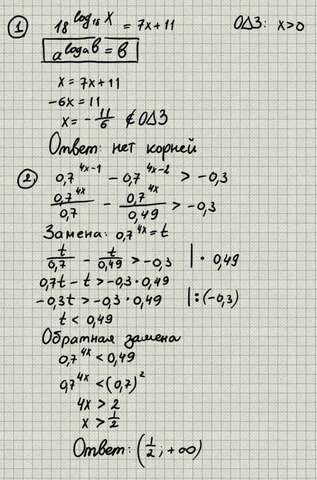 ① 18^(log₁₈ x) = 7x+11 ОДЗ: x>0
a^(logₐ b) = b
x = 7x+11
-6x = 11
x = -11/6 ∉ ОДЗ
Ответ: нет корней
② 0,7^(4x-1) - 0,7^(4x-2) > -0,3
0,7^(4x)/0,7 - 0,7^(4x)/0,49 > -0,3
Замена: 0,7^(4x) = t
t/0,7 - t/0,49 > -0,3 | · 0,49
0,7t - t > -0,3 · 0,49
-0,3t > -0,3 · 0,49 | : (-0,3)
t < 0,49
Обратная замена
0,7^(4x) < 0,49
0,7^(4x) < (0,7)²
4x > 2
x > 1/2
Ответ: (1/2; +∞)